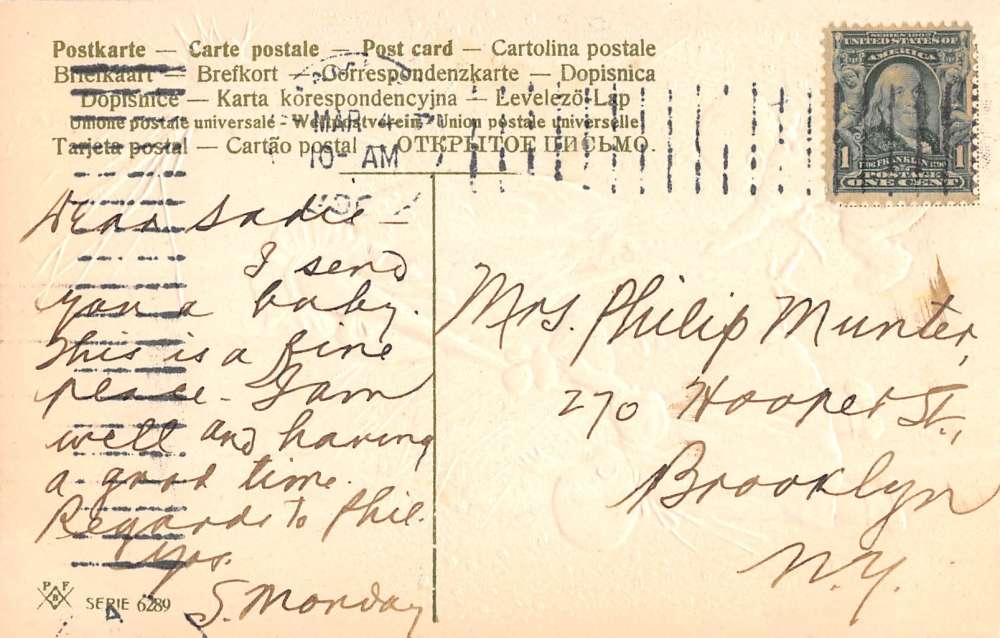 Postkarte — Carte postale — Post card — Cartolina postale
Briefkaart — Brefkort — Correspondenzkarte — Dopisnica
Dopisnice — Karta korespondencyjna — Levelező-Lap
Unione postale universale - Weltpostverein - Union postale universelle
Tarjeta postal — Cartão postal — ОТКРЫТОЕ ПИСЬМО.
SERIES 1902
UNITED STATES OF
AMERICA
1 FRANKLIN 1
POSTAGE
ONE CENT
MAR 4
10- AM
Dear Sadie —
I send
you a baby.
This is a fine
place - I am
well and having
a good time.
Regards to Phil.
S. Monday
Mrs. Philip Munter,
270 Hooper St.,
Brooklyn
N.Y.
P F
B
SERIE 6289